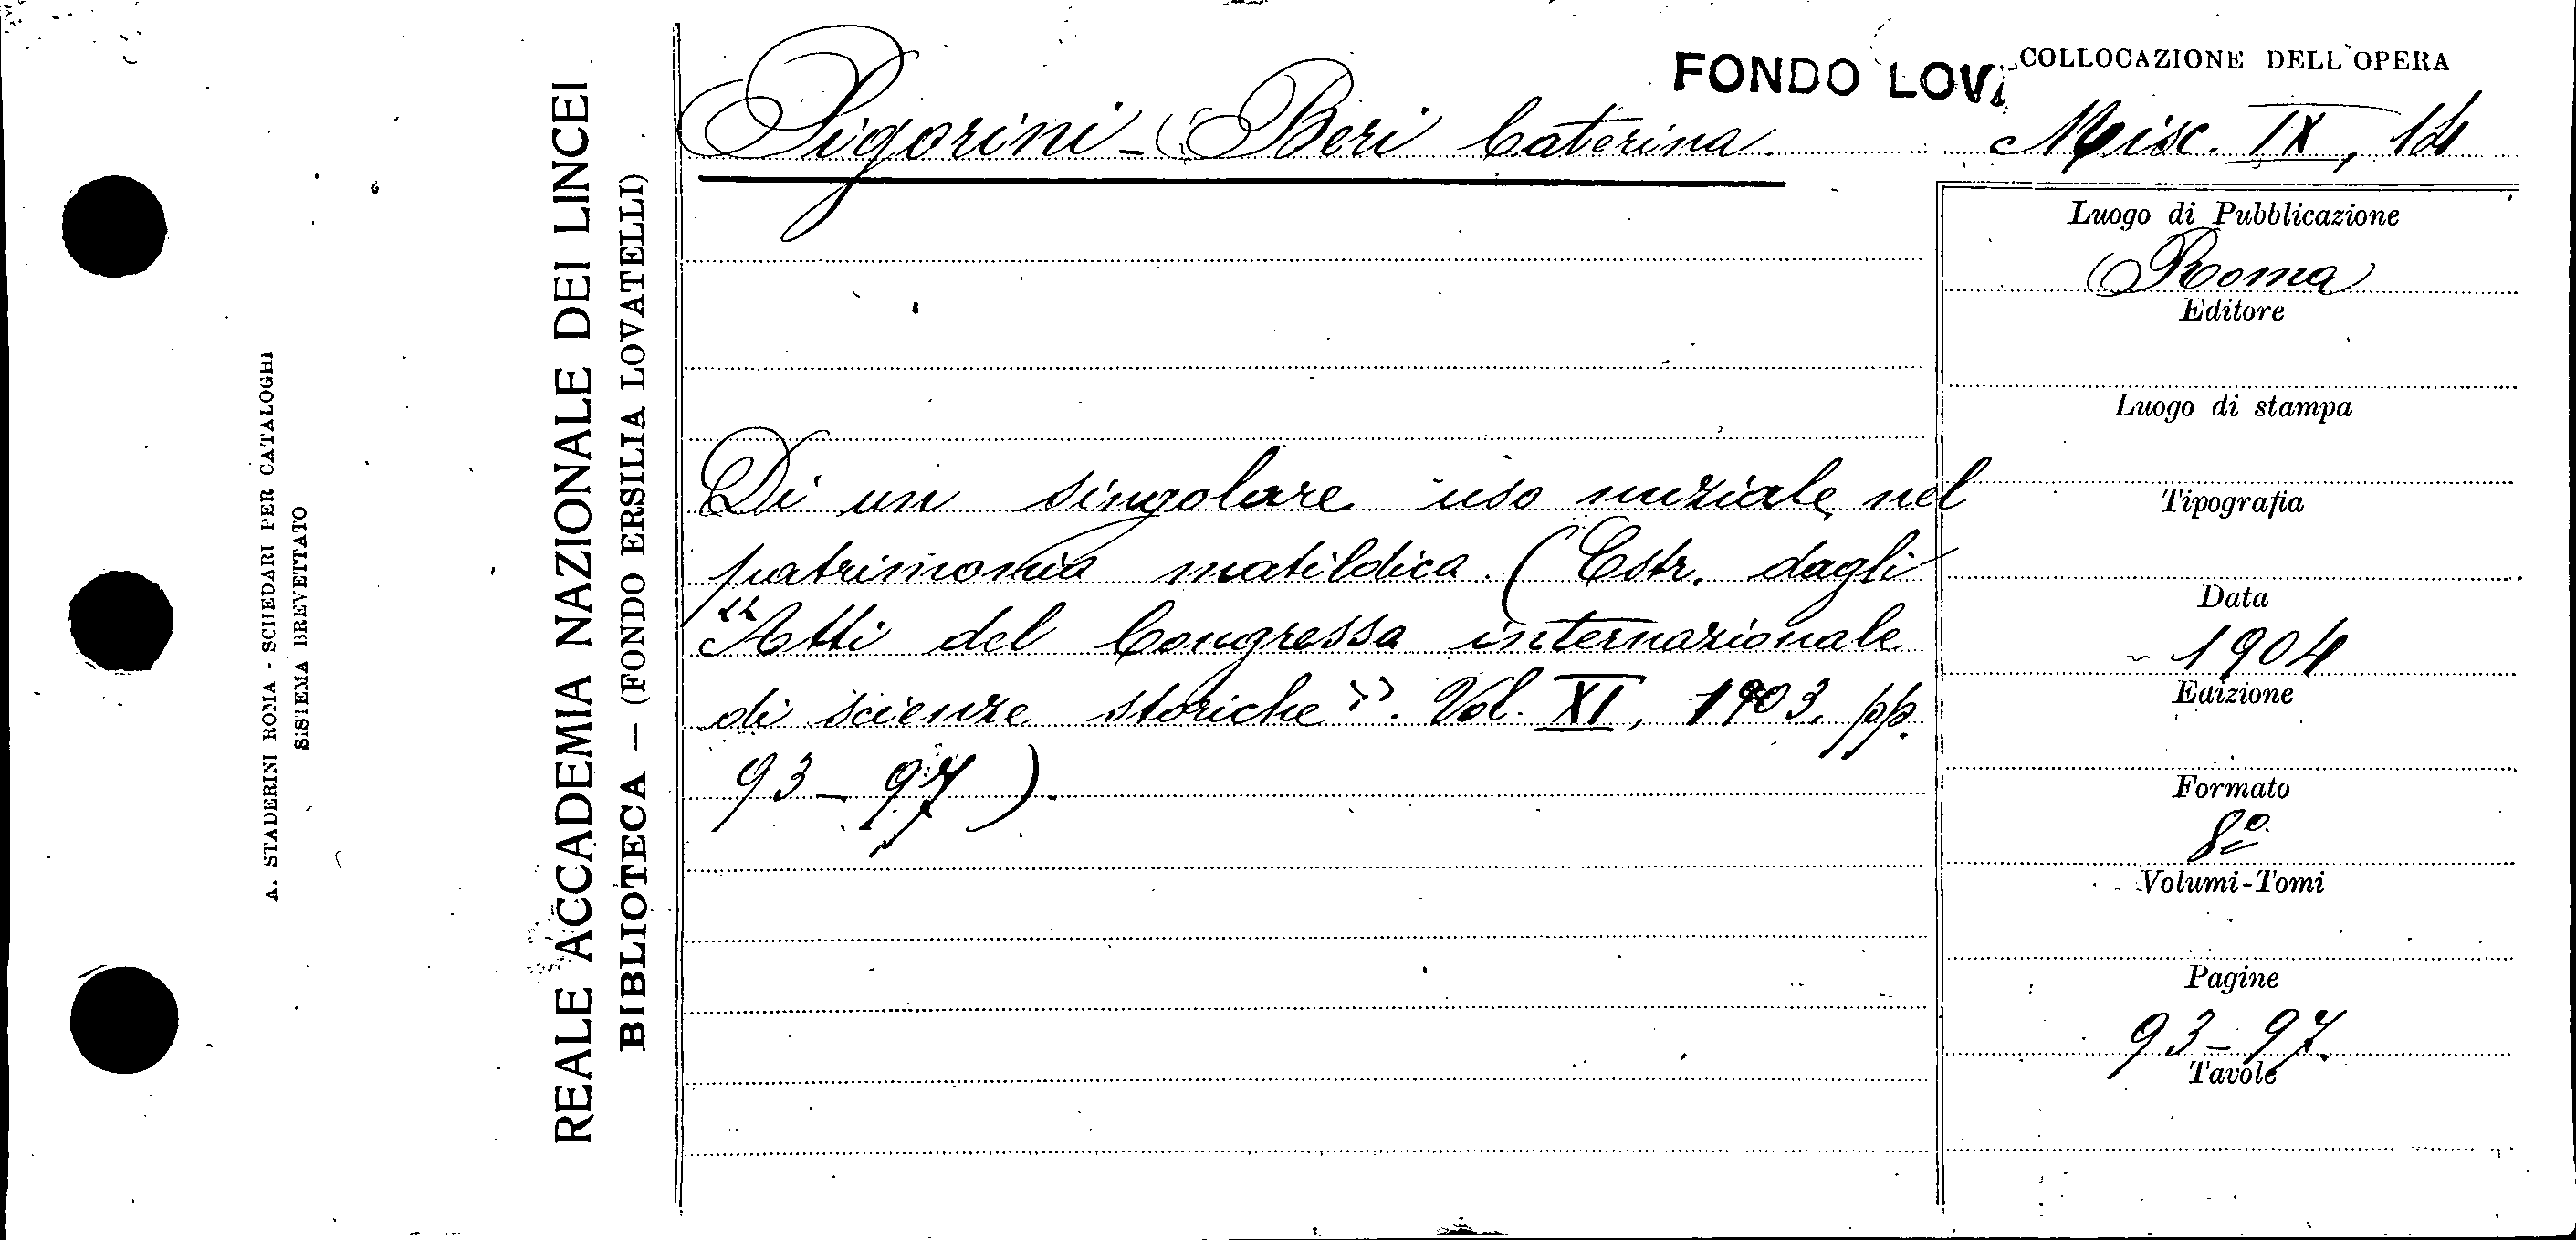 FONDO LOVA
COLLOCAZIONE DELL'OPERA
Pigorini-Beri Caterina
Misc. IX, 14
REALE ACCADEMIA NAZIONALE DEI LINCEI
BIBLIOTECA — (FONDO ERSILIA LOVATELLI)
A. STADERINI ROMA - SCHEDARI PER CATALOGHI
SISTEMA BREVETTATO
Di un singolare uso nuziale nel
patrimonio matildico. (Estr. dagli
"Atti del Congresso internazionale
di scienze storiche". Vol. XI, 1903. pp.
93-97).
Luogo di Pubblicazione
Roma
Editore
Luogo di stampa
Tipografia
Data
1904
Edizione
Formato
8º
Volumi-Tomi
Pagine
93-97.
Tavole